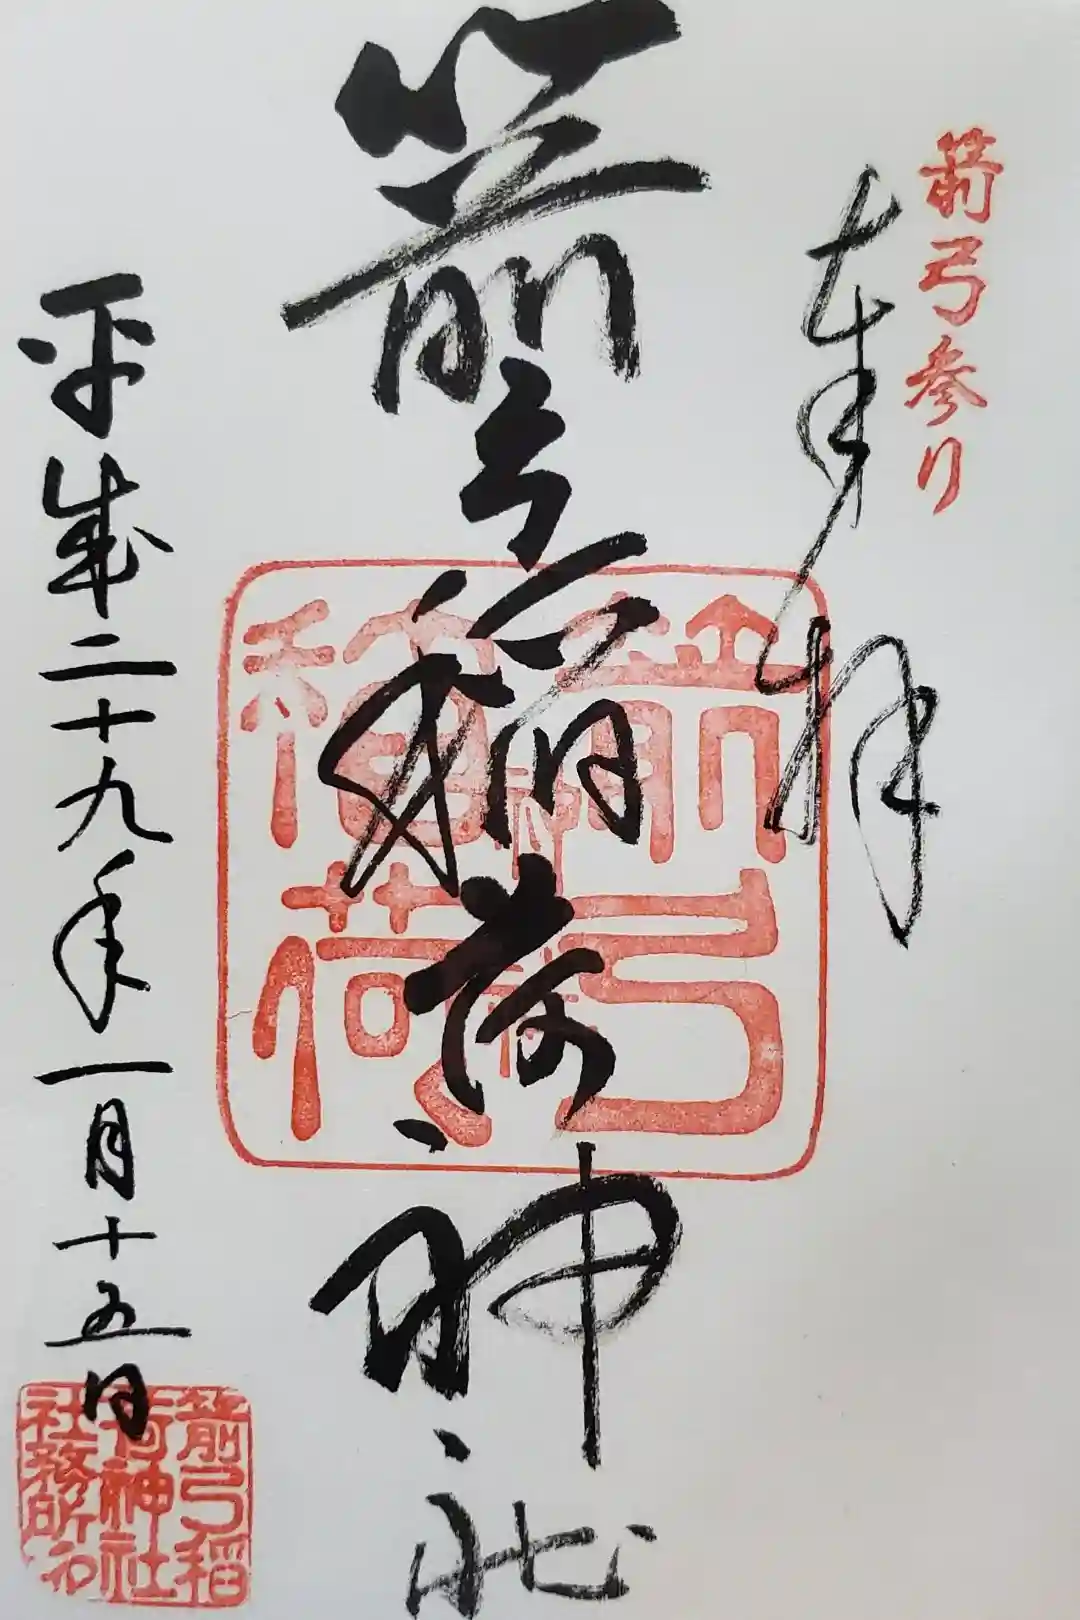 箭弓参り
奉拝
箭弓稲荷神社
箭弓稲荷神社
平成二十九年一月十五日
箭弓稲
荷神社
社務所印